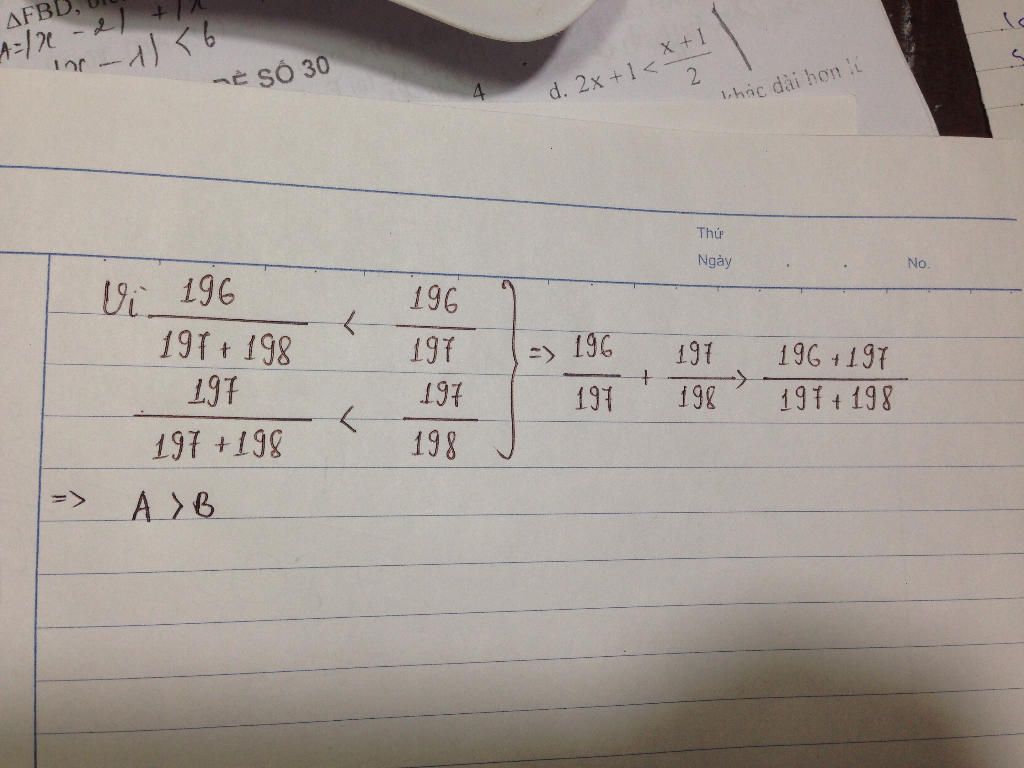 ΔFBD,
A=|x - 2| + |x
|x - 1| < 6
ĐỀ SỐ 30
4
d. 2x + 1 < \frac{x+1}{2}
khác dài hơn
Thứ
Ngày . . No.
Vì \frac{196}{197 + 198} < \frac{196}{197}
\frac{197}{197 + 198} < \frac{197}{198}
} => \frac{196}{197} + \frac{197}{198} > \frac{196 + 197}{197 + 198}
=> A > B